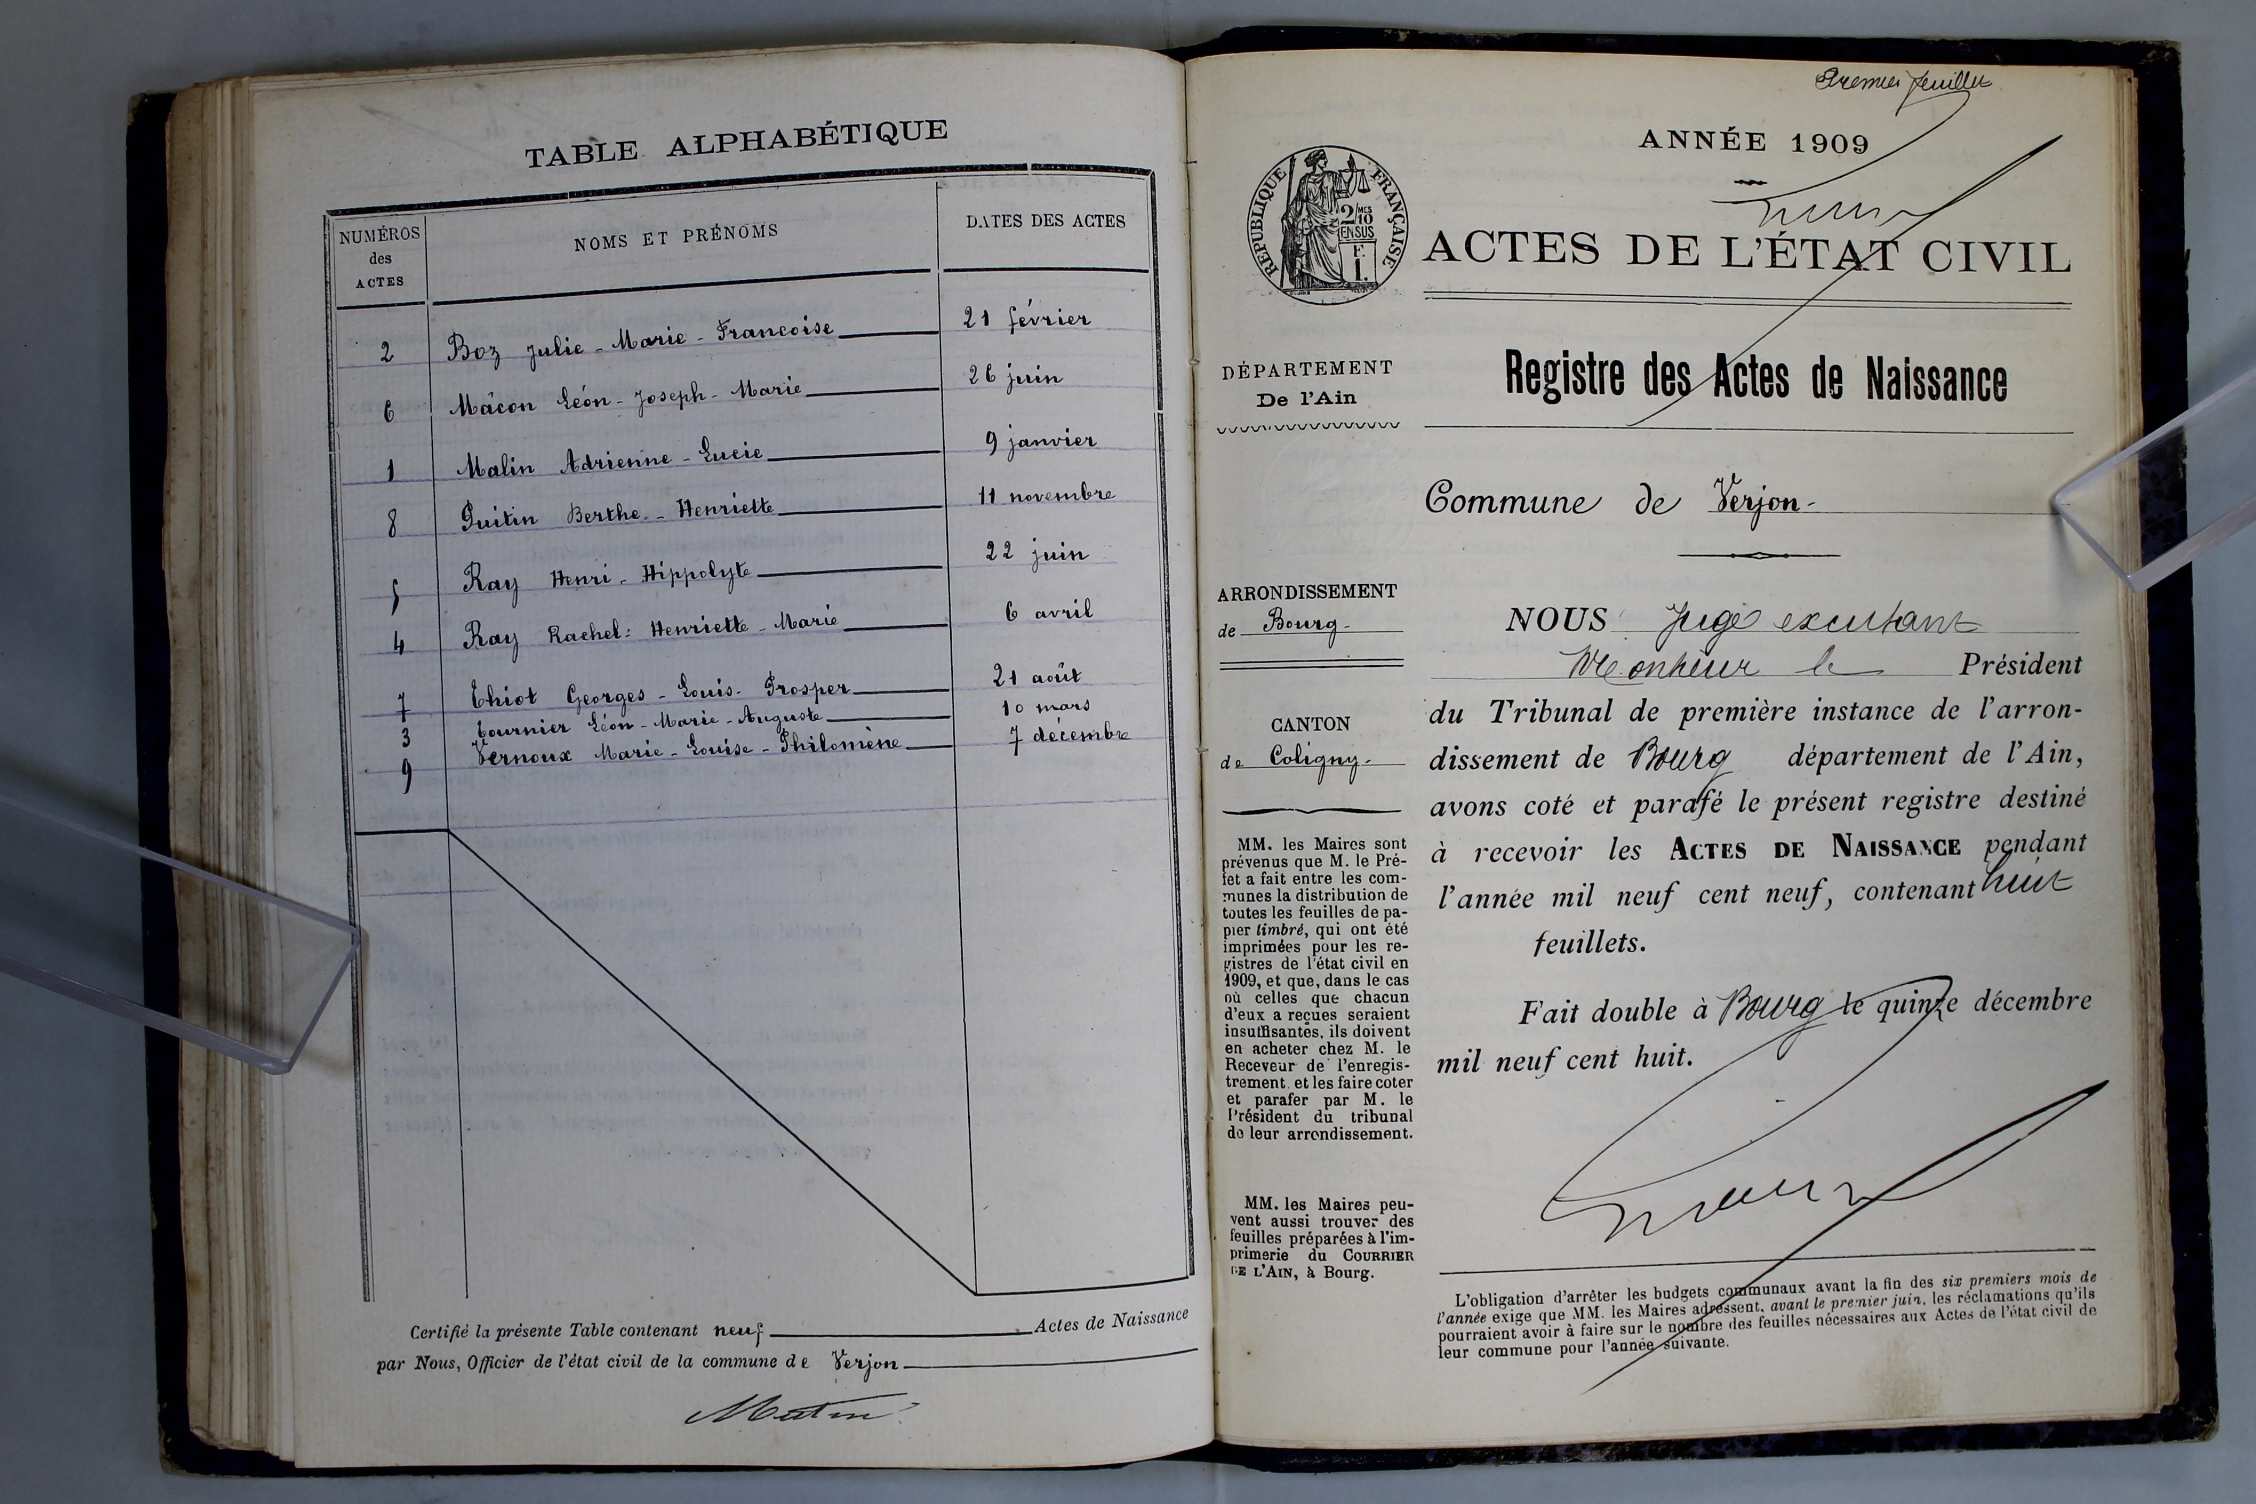 TABLE ALPHABÉTIQUE
NUMÉROS des ACTES NOMS ET PRÉNOMS DATES DES ACTES
2 Boz Julie - Marie - Francoise 21 février
6 Mâcon Léon - Joseph - Marie 26 juin
1 Malin Adrienne - Lucie 9 janvier
8 Puitin Berthe - Henriette 11 novembre
5 Ray Henri - Hippolyte 22 juin
4 Ray Rachel - Henriette - Marie 6 avril
7 Thiot Georges - Louis - Prosper 21 août
3 Tournier Léon - Marie - Auguste 10 mars
9 Vernoux Marie - Louise - Philomène 7 décembre
Certifié la présente Table contenant neuf Actes de Naissance
par Nous, Officier de l'état civil de la commune de Verjon
Premier feuillet
ANNÉE 1909
RÉPUBLIQUE FRANÇAISE
2 MES 10
EN SUS
F.
1.
ACTES DE L'ÉTAT CIVIL
DÉPARTEMENT
De l'Ain
Registre des Actes de Naissance
Commune de Verjon -
ARRONDISSEMENT
de Bourg -
CANTON
de Coligny -
MM. les Maires sont
prévenus que M. le Pré-
fet a fait entre les com-
munes la distribution de
toutes les feuilles de pa-
pier timbré, qui ont été
imprimées pour les re-
gistres de l'état civil en
1909, et que, dans le cas
où celles que chacun
d'eux a reçues seraient
insuffisantes, ils doivent
en acheter chez M. le
Receveur de l'enregis-
trement et les faire coter
et parafer par M. le
Président du tribunal
de leur arrondissement.
MM. les Maires peu-
vent aussi trouver des
feuilles préparées à l'im-
primerie du COURRIER
DE L'AIN, à Bourg.
NOUS Juge
le Président
du Tribunal de première instance de l'arron-
dissement de Bourg département de l'Ain,
avons coté et parafé le présent registre destiné
à recevoir les ACTES DE NAISSANCE pendant
l'année mil neuf cent neuf, contenant huit
feuillets.
Fait double à Bourg le quinze décembre
mil neuf cent huit.
L'obligation d'arrêter les budgets communaux avant la fin des six premiers mois de
l'année exige que MM. les Maires adressent, avant le premier juin, les réclamations qu'ils
pourraient avoir à faire sur le nombre des feuilles nécessaires aux Actes de l'état civil de
leur commune pour l'année suivante.